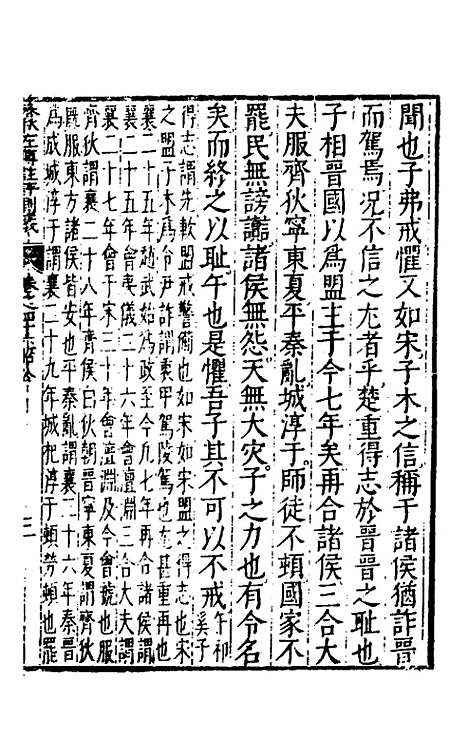 聞也子弗戒懼又如宋子木之信稱于諸侯猶詐晉
而駕焉况不信之尤者乎楚重得志於晉晉之耻也
子相晉國以爲盟主于今七年矣再合諸侯三合大
夫服齊狄寧東夏平秦亂城淳于師徒不頓國家不
罷民無謗讟諸侯無怨天無大災子之力也有令名
矣而終之以耻午也是懼吾子其不可以不戒午祁奚子
得志謂先歃盟戒警備也如宋盟之得志也宋
之盟子木爲令尹詐謂衷甲駕陵駕也尤甚重再也
襄二十五年趙武始爲政至今九七年再合諸侯謂
襄二十五年會夷儀二十六年會澶淵三合大夫謂
襄二十七年會于宋三十年會澶淵及今會虢也服
齊狄謂襄二十八年齊侯白狄朝晉寧東夏謂齊狄
旣服東方諸侯皆安也平秦亂謂襄二十六年秦晉
爲成城淳于謂襄二十九年城杞淳于頓勞頓也罷
春秋左傳註評測義 卷之四十六昭公